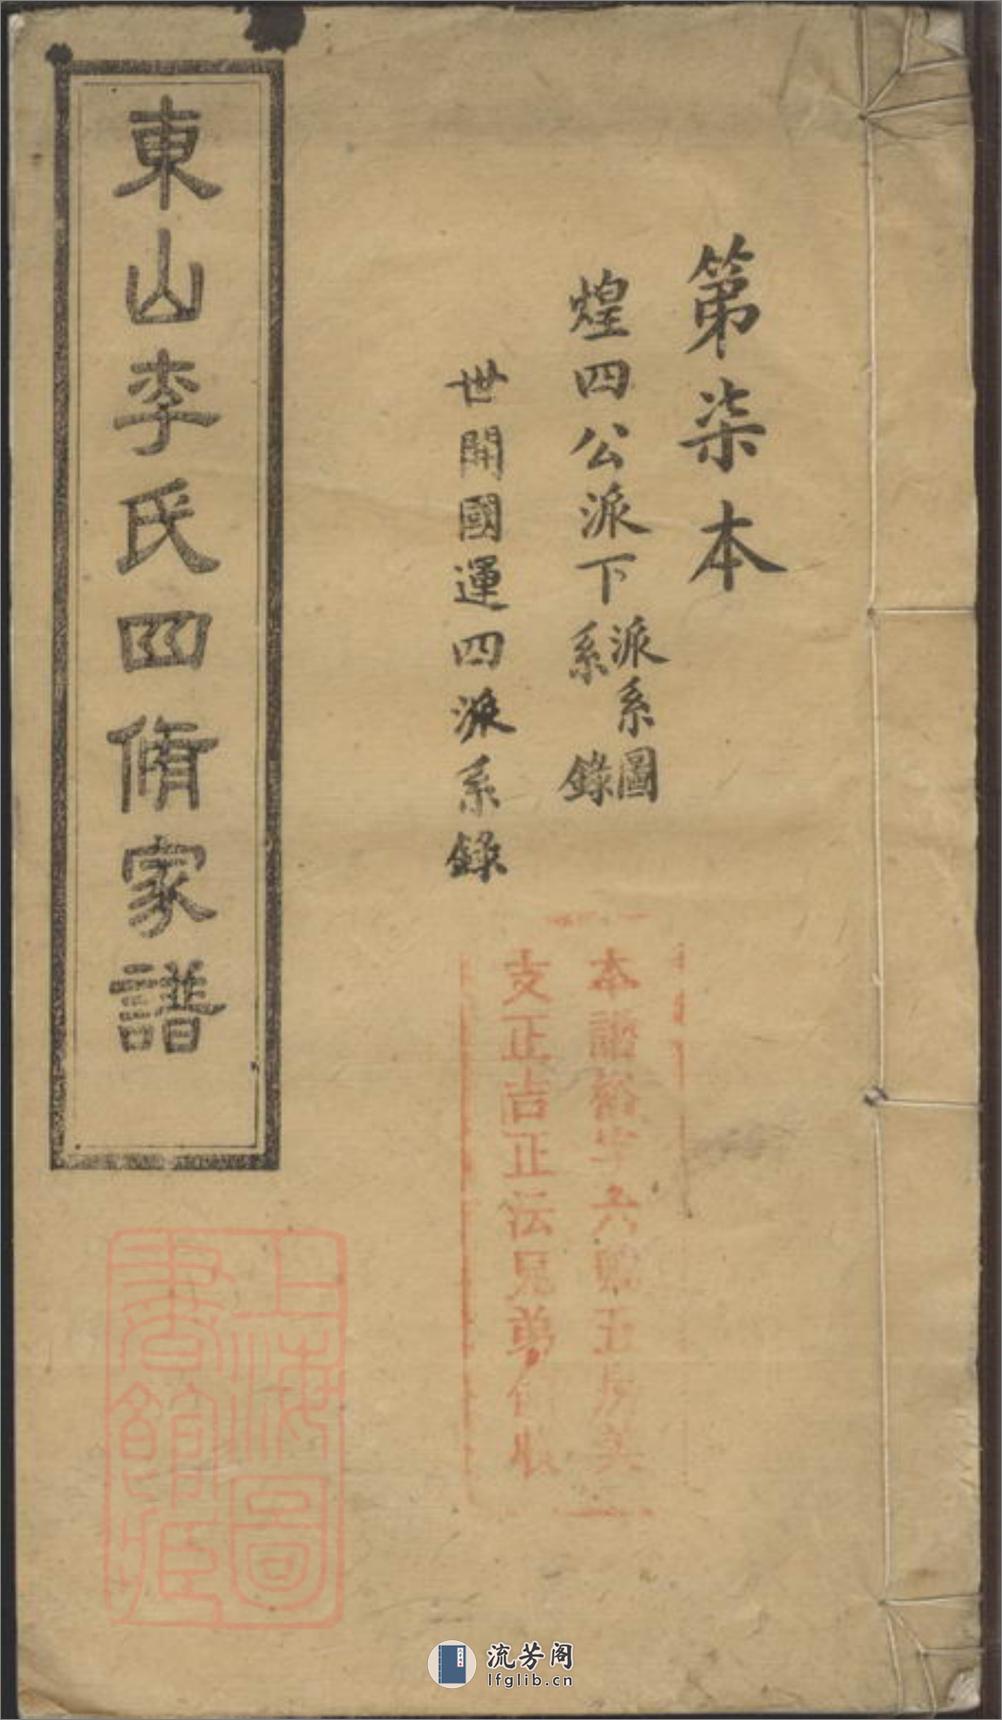 第柒本
煌四公派下
派系圖
系錄
世開國運四派系錄
東山李氏四脩家譜
本譜裕字六
支正吉正沄兄弟
上海圖
書館藏
流芳阁
lfglib.cn